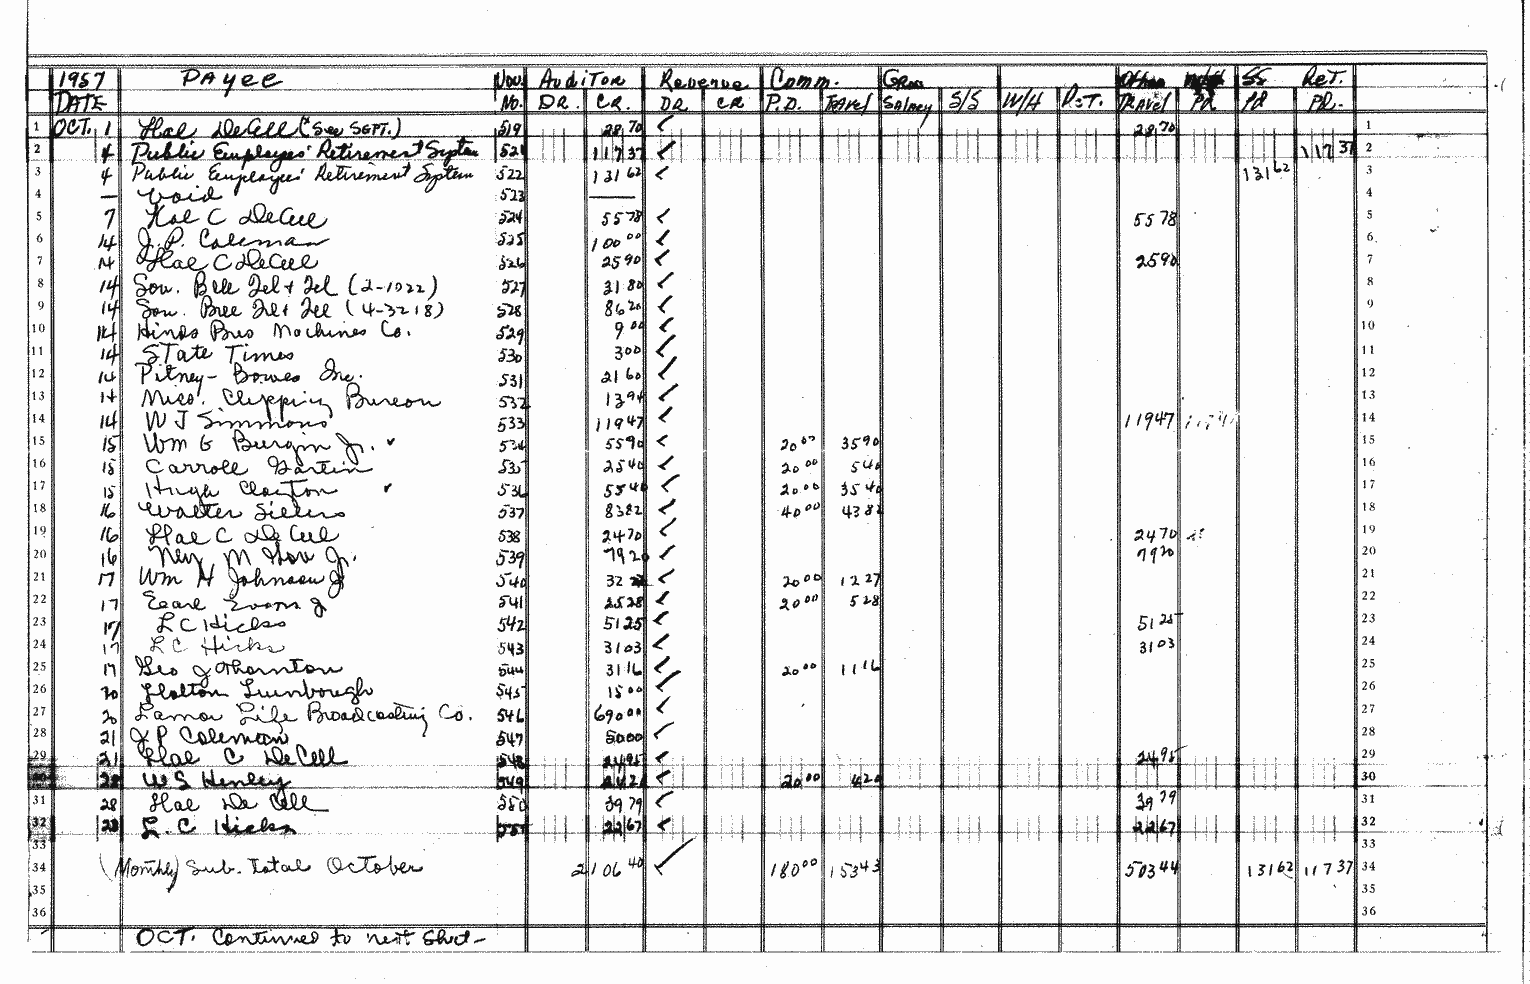 1957 PAYEE Vou. AUDITOR Revenue Comm. Gross Other SS RET.
DATE No. DR. CR. DR CR P.D. TRAvel SAlARY S/S W/H RET. TRAVEL PD PD PD.
1 OCT. 1 Hal DeCell (See SEPT.) 519 28 70 ✓ 28 70 1
2 4 Public Employees' Retirement System 521 117 37 ✓ 117 37 2
3 4 Public Employees' Retirement System 522 131 62 ✓ 131 62 3
4 — Void 523 — 4
5 7 Hal C DeCell 524 55 78 ✓ 55 78 5
6 14 J. P. Coleman 525 100 00 ✓ 6
7 14 Hal C DeCell 526 25 90 ✓ 25 90 7
8 14 Sou. Bell Tel & Tel (2-1022) 527 31 80 ✓ 8
9 14 Sou. Bell Tel & Tel (4-3218) 528 86 20 ✓ 9
10 14 Hinds Bus Machines Co. 529 9 00 ✓ 10
11 14 STate Times 530 3 00 ✓ 11
12 14 Pitney-Bowes Inc. 531 21 60 ✓ 12
13 14 Miss. Clipping Bureau 532 13 94 ✓ 13
14 14 W J Simmons 533 119 47 ✓ 119 47 14
15 15 Wm G Burgin Jr. ✓ 534 55 90 ✓ 20 00 35 90 15
16 15 Carroll Gartin 535 25 40 ✓ 20 00 5 40 16
17 15 Hugh Clayton ✓ 536 55 40 ✓ 20 00 35 40 17
18 16 Walter Sillers 537 83 82 ✓ 40 00 43 82 18
19 16 Hal C DeCell 538 24 70 ✓ 24 70 19
20 16 Ney M Gore Jr. 539 79 20 ✓ 79 20 20
21 17 Wm H Johnson Jr 540 32 27 ✓ 20 00 12 27 21
22 17 Earl Evans Jr 541 25 28 ✓ 20 00 5 28 22
23 17 L C Hicks 542 51 25 ✓ 51 25 23
24 17 L C Hicks 543 31 03 ✓ 31 03 24
25 17 Geo J Thornton 544 31 16 ✓ 20 00 11 16 25
26 20 545 15 00 ✓ 26
27 20 Lamar Life Broadcasting Co. 546 690 00 ✓ 27
28 21 J P Coleman 547 50 00 ✓ 28
29 21 Hal C DeCell 548 24 95 ✓ 24 95 29
30 28 W S Henley 549 24 20 ✓ 20 00 4 20 30
31 28 Hal De Cell 550 39 79 ✓ 39 79 31
32 28 L. C Hicks 551 22 67 ✓ 22 67 32
33 33
34 (Monthly) Sub. Total October 2106 40 ✓ 180 00 153 43 503 44 131 62 117 37 34
35 35
36 36
OCT. Continued to next Sheet-